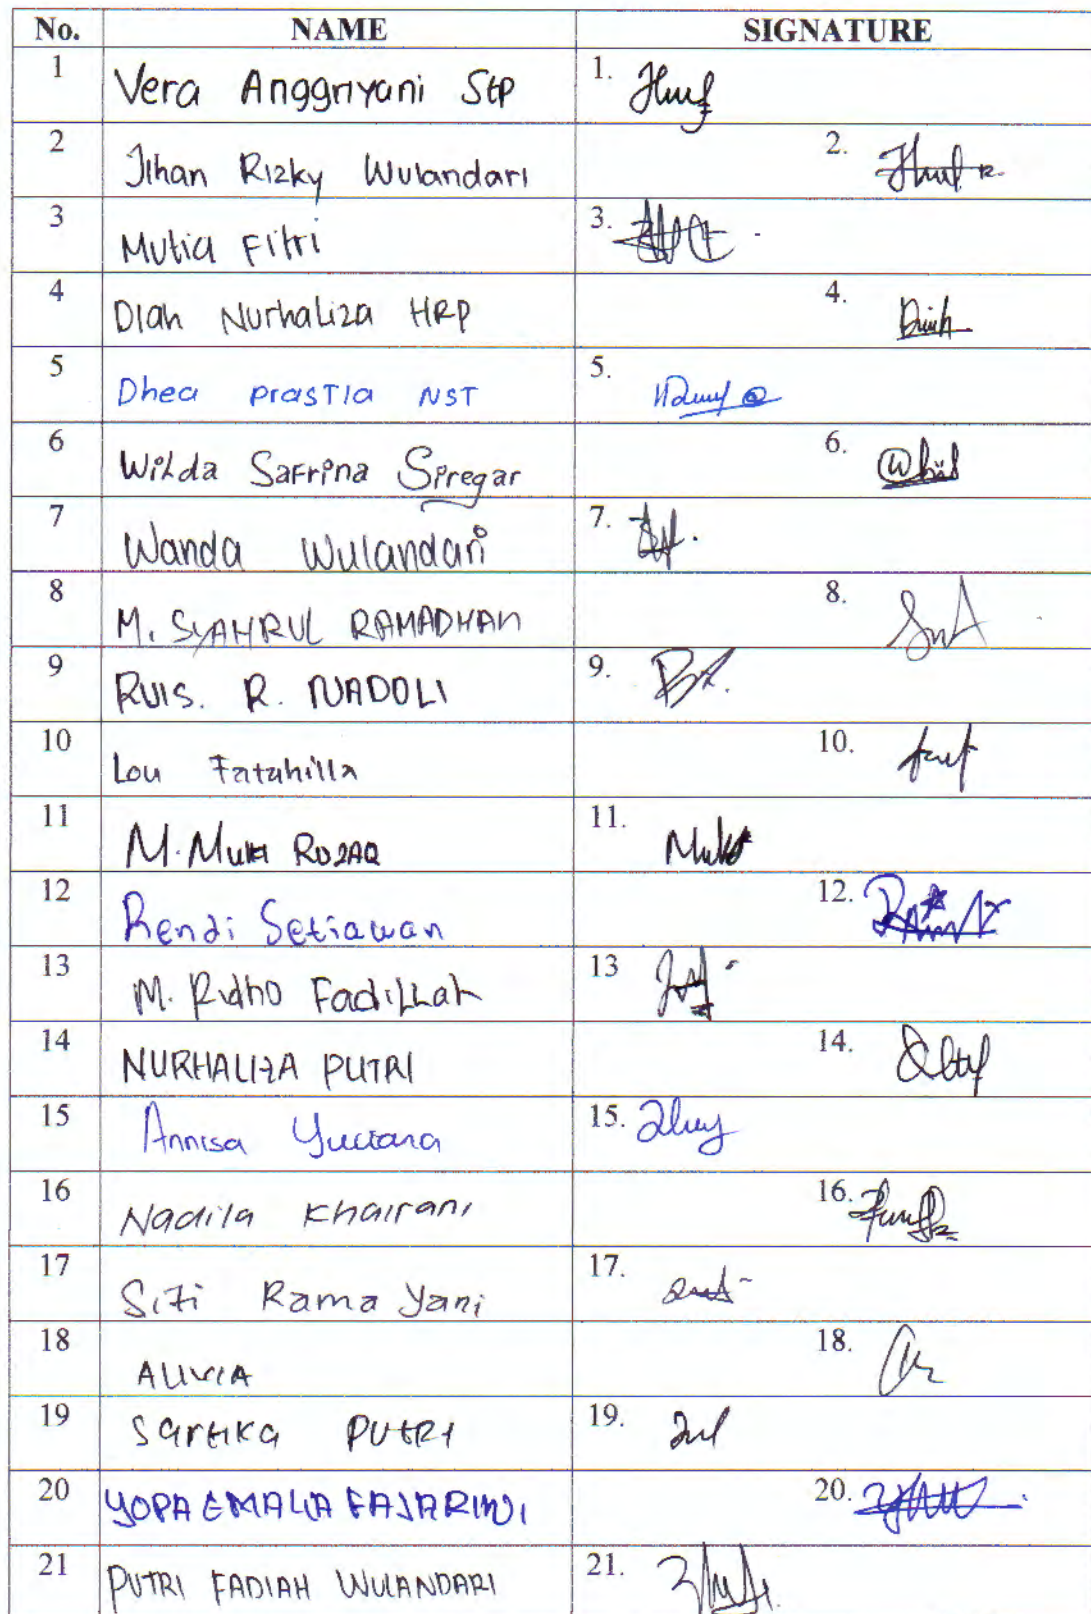 No. NAME SIGNATURE
1 Vera Anggriyani Stp 1.
2 Jihan Rizky Wulandari 2.
3 Mutia Fitri 3.
4 Diah Nurhaliza HRP 4.
5 Dhea prasTia NST 5.
6 Wilda Safrina Siregar 6.
7 Wanda Wulandari 7.
8 M. SYAHRUL RAMADHAN 8.
9 RUIS. R. NADOLI 9.
10 Lou Fatahilla 10.
11 M. Mukti ROZAQ 11.
12 Rendi Setiawan 12.
13 M. Ridho Fadillah 13
14 NURHALIZA PUTRI 14.
15 Annisa 15.
16 Nadila Khairani 16.
17 Siti Rama Yani 17.
18 ALIVIA 18.
19 Sartika PUtRI 19.
20 YOPA EMALIA FAJARINI 20.
21 PUTRI FADIAH WULANDARI 21.